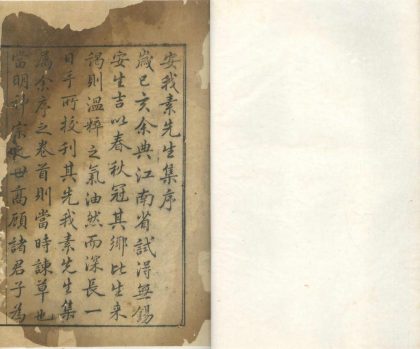 安我素先生集序
歲己亥余典江南省試得無錫
安生吉以春秋冠其鄉比生来
謁則溫粹之氣油然而深長一
日手所校刊其先我素先生集
屬余序之卷首則當時諫草也
當明神宗 世高顧諸君子為